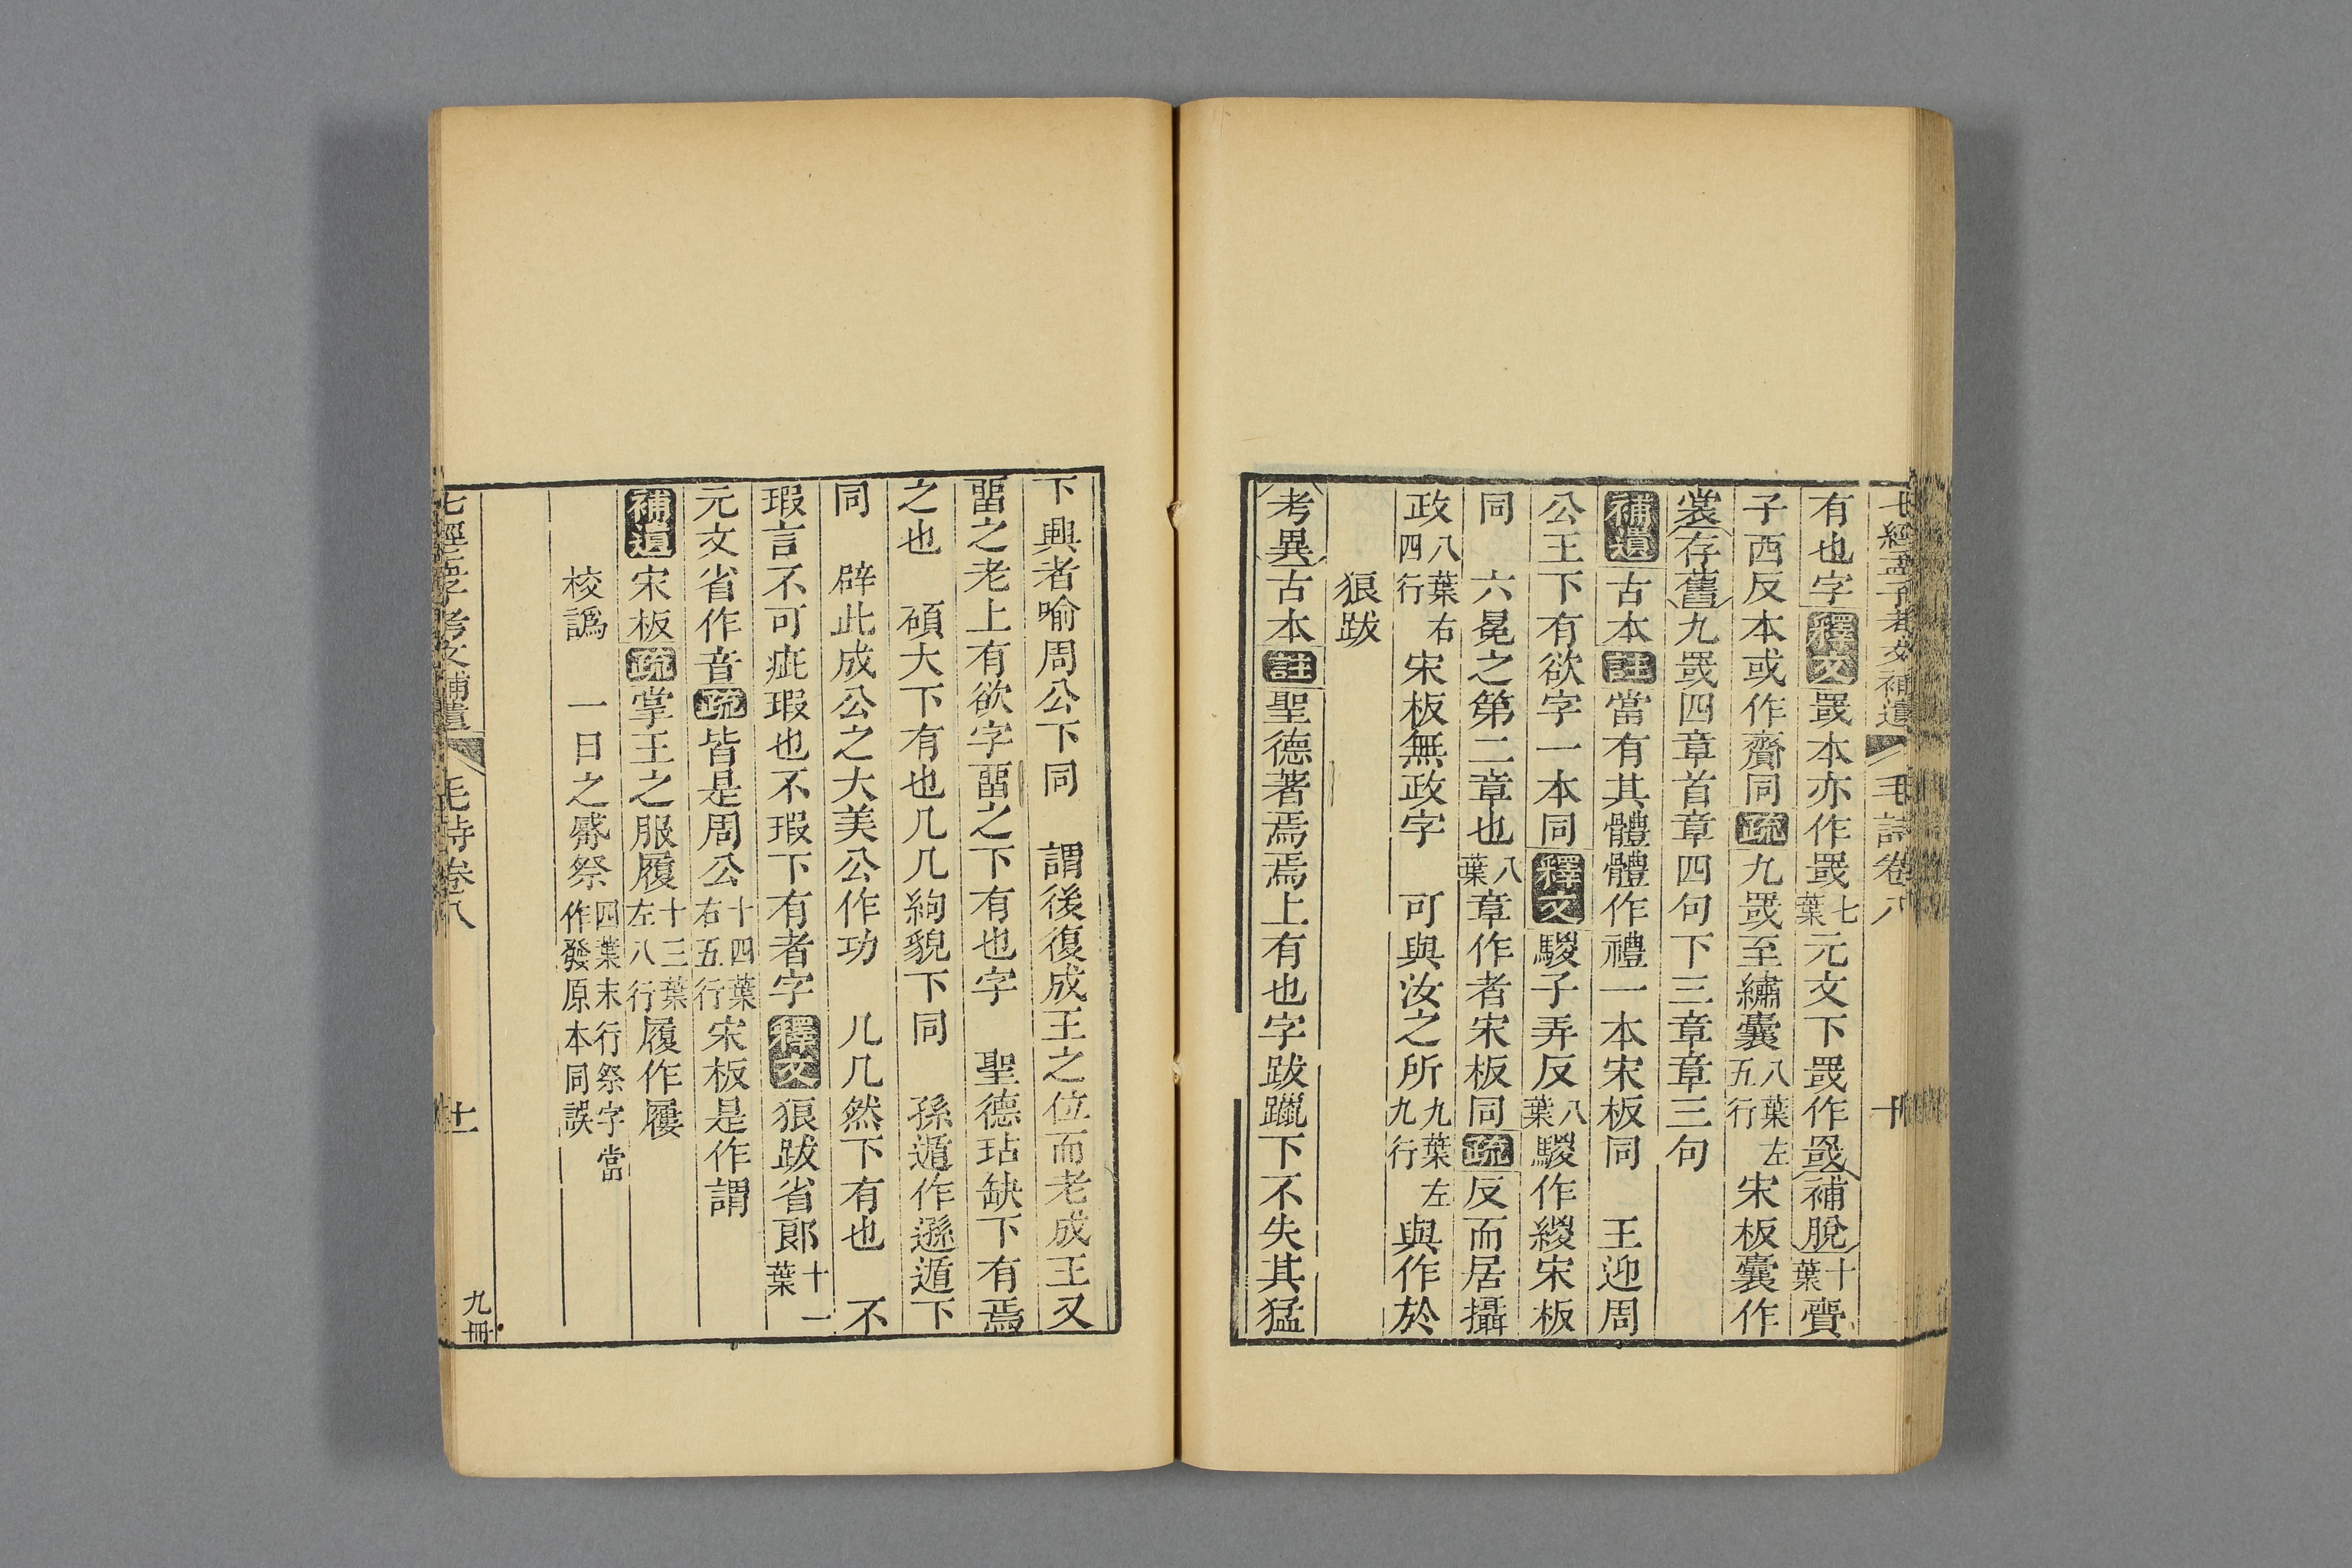 七經孟子考文補遺 毛詩卷八
有也字釋文罭本亦作罭七葉元文下罭作罭補脫十葉賷
子西反本或作齎同疏九罭至繡囊八葉左五行宋板囊作
裳存舊九罭四章首章四句下三章章三句
補遺古本註當有其體體作禮一本宋板同 王迎周
公王下有欲字一本同釋文騣子弄反八葉騣作緵宋板
同 六冕之第二章也八葉章作者宋板同疏反而居攝
政八葉右四行宋板無政字 可與汝之所九葉左九行與作於
狼跋
考異古本註聖德著焉焉上有也字跋躐下不失其猛
下興者喻周公下同 謂後復成王之位而老成王又
畱之老上有欲字畱之下有也字 聖德玷缺下有焉
之也 碩大下有也几几絇貌下同 孫遁作遜遁下
同 辟此成公之大美公作功 几几然下有也 不
瑕言不可疵瑕也不瑕下有者字釋文狼跋省郞十一葉
元文省作音疏皆是周公十四葉右五行宋板是作謂
補遺宋板疏掌王之服履十三葉左八行履作屨
校譌 一日之觱祭四葉末行祭字當作發原本同誤
七經孟子考文補遺 毛詩卷八 十一 九冊